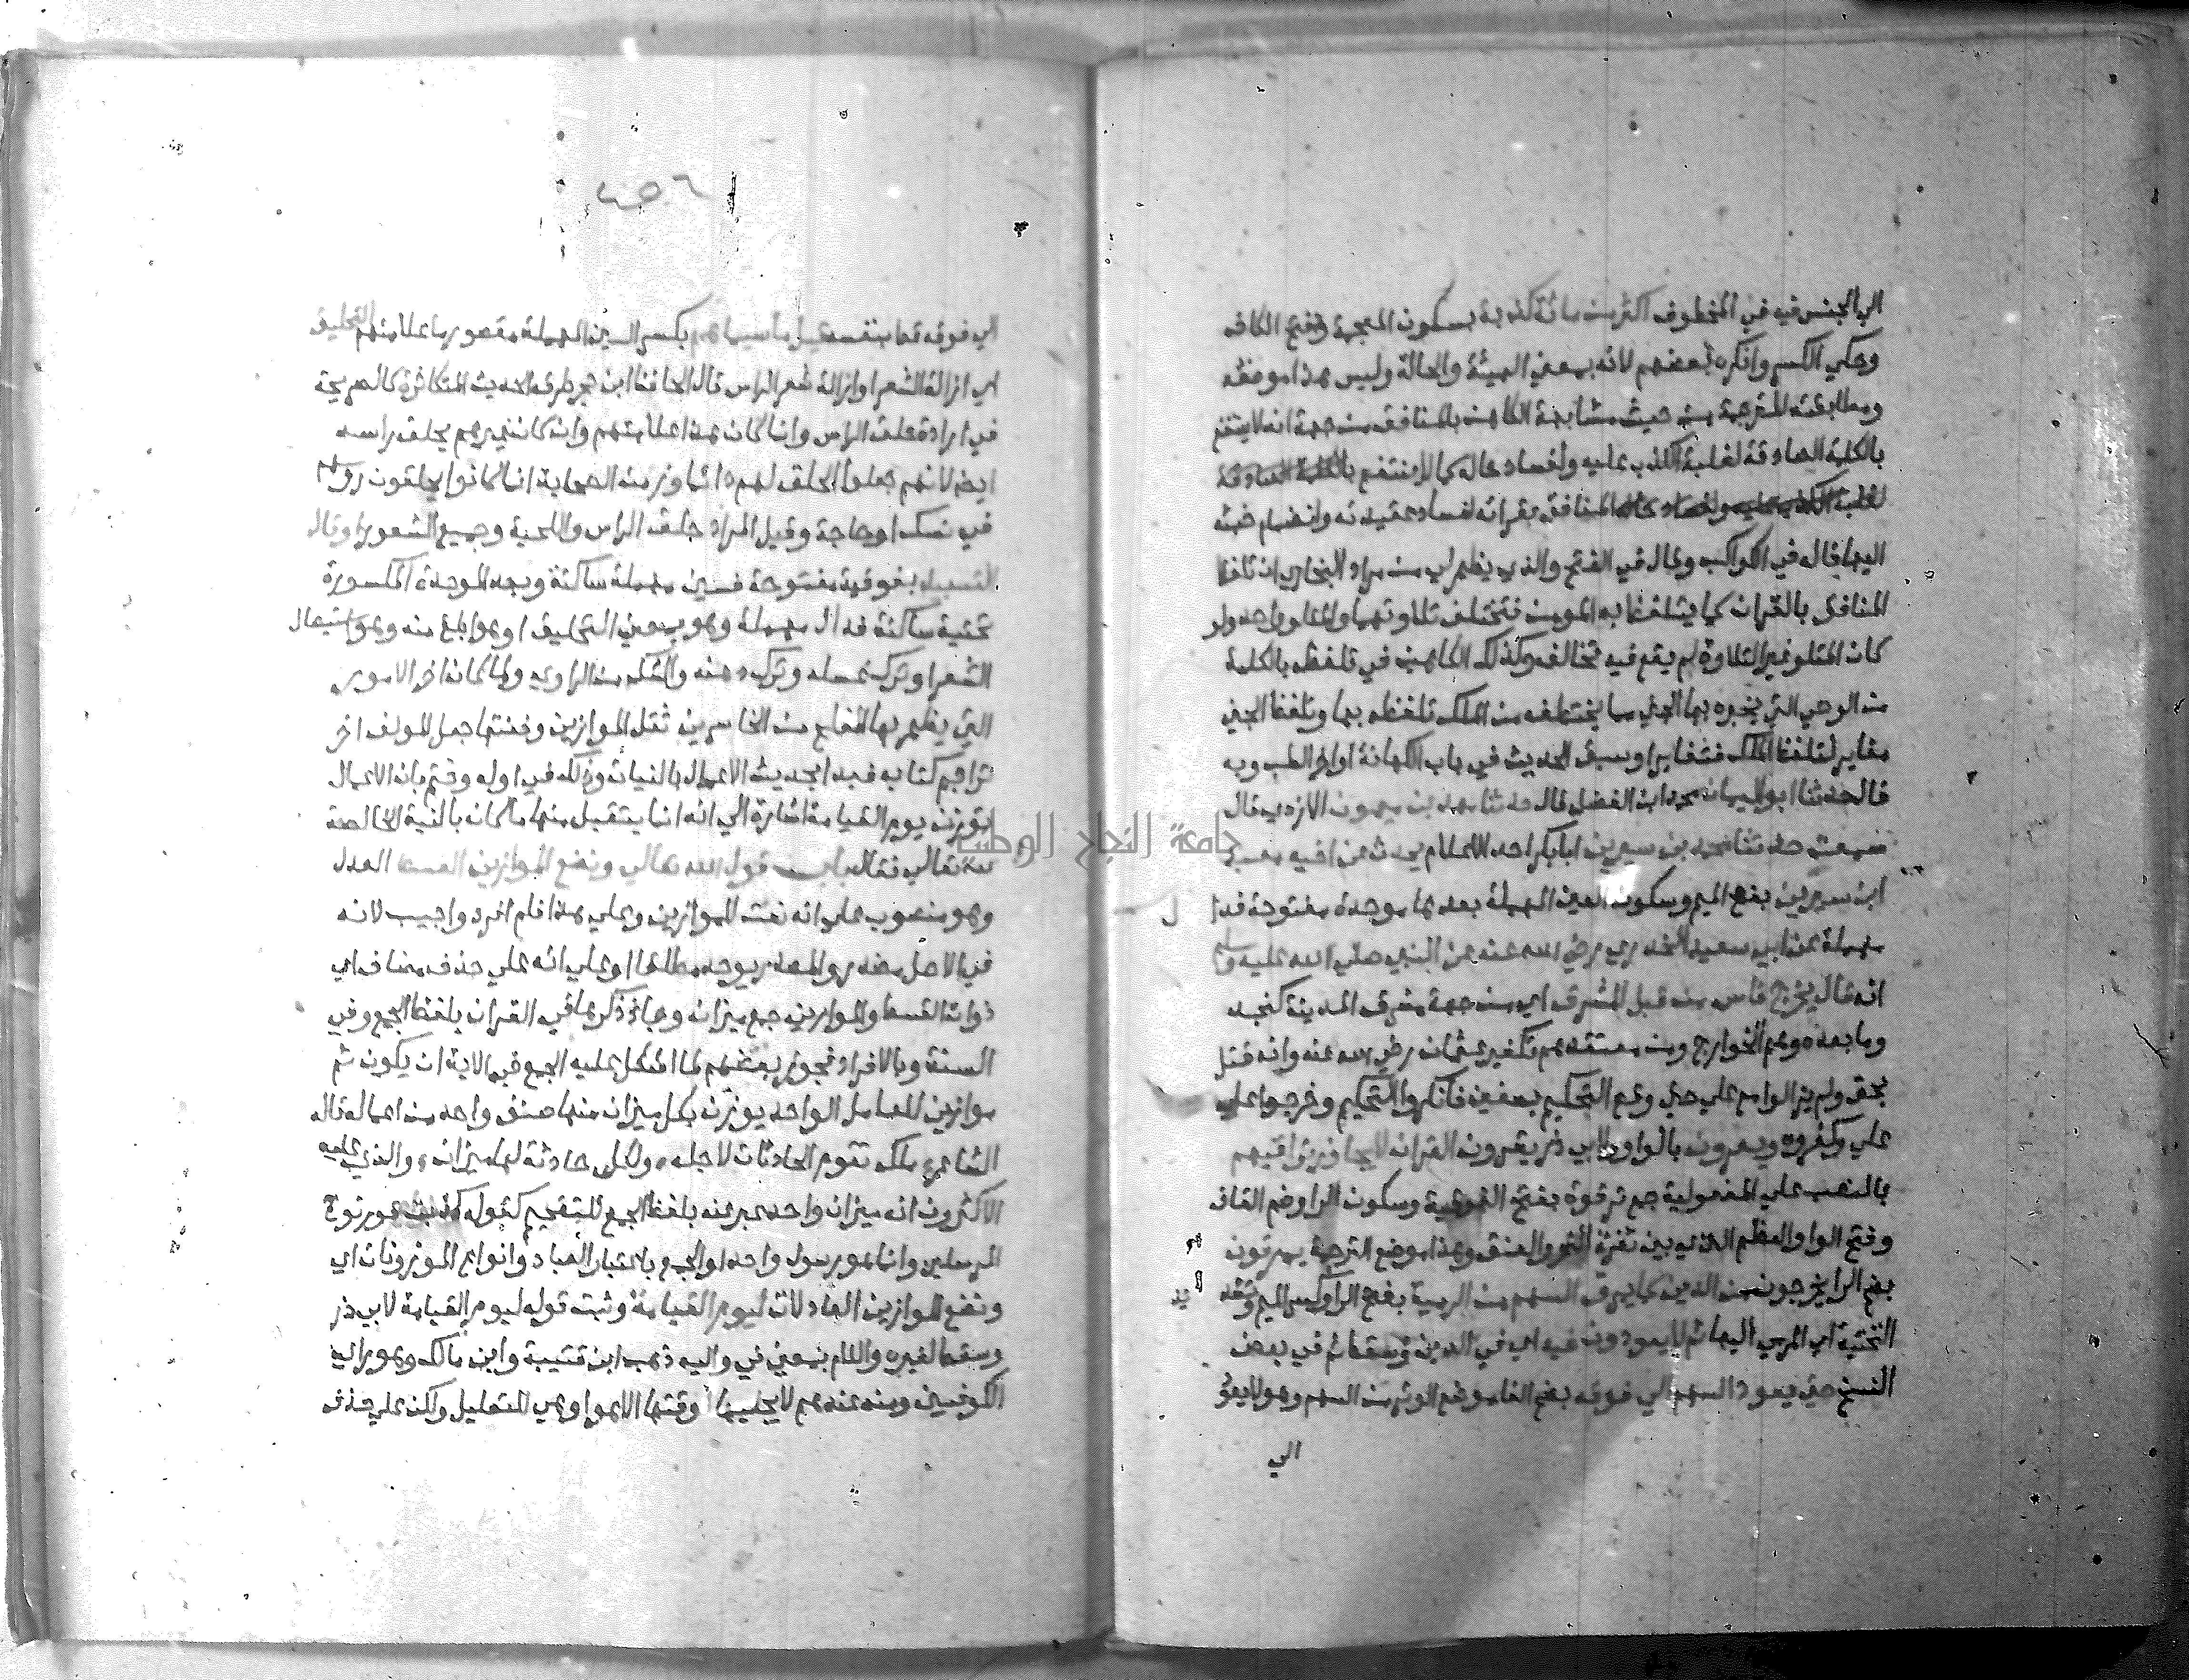 الي الجنس فيه في المخطوف اكثر من مائة كذبة بسكون المعجمة وفتح الكاف
وحكي الكسر وانكره بعضهم لانه بمعني الهيئة والحالة وليس هذا موضعه
ومطابقته للترجمة من حيث مشابهة الكاهن بالمنافق من جهة انه لا ينتفع
بالكلمة الصادقة لغلبة الكذب عليه ولفساد حاله كما لا ينتفع بالكلمة الصادقة
لغلبة الكذب عليه ولفساد حاله المنافق بقرأته لفساد عقيدته وانضمام خبثه
اليها قاله في الكواكب وقال في الفتح والذي يظهر لي من مراد البخاري ان تلفظ
المنافق بالقران كما يتلفظ به المومن فتختلف تلاوتهما والمتلو واحد ولو
كان المتلو غير التلاوة لم يقع فيه تخالف وكذلك الكاهن في تلفظه بالكلمة
من الوحي التي يخبره بها الجني مما يختطفه من الملك تلفظه بها وتلفظ الجني
مغاير لتلفظ الملك فتغايرا وسبق الحديث في باب الكهانة اواخر الطب وبه
قال حدثنا ابو اليمان محمد بن الفضل قال حدثنا مهدي بن ميمون الازدي قال
سمعت حدثنا محمد بن سيرين ابا بكر احد الاعلام يحدث عن اخيه معبد
ابن سيرين بفتح الميم وسكون العين المهملة بعدها موحدة مفتوحة فدا ل
مهملة عن ابي سعيد الخدري رضي الله عنه عن النبي صلي الله عليه وسلم
انه قال يخرج ناس من قبل المشرق اي من جهة مشرق المدينة كنجد
وما بعده وهم الخوارج ومن معتقدهم تكفير عثمان رضي الله عنه وانه قتل
بحق ولم يزالوا مع علي حتي وقع التحكيم بصفين فانكروا التحكيم وخرجوا علي
علي وكفروه ويقرون بالواو ولابي ذر يقرون القران لا يجاوز تراقيهم
بالنصب علي المفعولية جمع ترقوة بفتح الفوقية وسكون الرا وضم القاف
وفتح الواو العظم الذي بين ثغرة النحر والعنق وهذا موضع الترجمة يمرقون
بضم الرا يخرجون من الدين كما يمرق السهم من الرمية بفتح الرا وكسر الميم وتشديد
التحتية اي المرمي اليها ثم لا يعودون فيه اي في الدين وسقط ثم في بعض
النسخ حتي يعود السهم الي فوقه بضم الفا موضع الوتر من السهم وهو لا يعود
الي
٤٥٦
الي فوقه قط بنفسه قيل ما سيماهم بكسر السين المهملة مقصور ما علامتهم التحليق
اي ازالة الشعر او ازالة شعر الراس قال الحافظ ابن حجر طرق الحديث المتكاثرة كالصريحة
في ارادة حلق الراس وانما كان هذا علامتهم وان كان غيرهم يحلق راسه
ايضا لانهم جعلوا الحلق لهم دائما وزمن الصحابة انما كانوا يحلقون روسهم
في نسك او حاجة وقيل المراد حلق الراس واللحية وجميع الشعور او قال
التسبيد بفوقية مفتوحة فسين مهملة ساكنة وبعد الموحدة المكسورة
تحتية ساكنة فدال مهملة وهو بمعني التحليق او هو ابلغ منه وهو استيصال
الشعر او ترك غسله وترك دهنه والشك من الراوي ولما كان اخر الامور
التي يظهر بها المفلح من الخاسرين ثقل الموازين وخفتها جعل المولف اخر
تراجم كتابه فبدا بحديث الاعمال بالنيات وذلك في اوله وختم بان الاعمال
توزن يوم القيامة اشارة الي انه انما يتقبل منها ما كان بالنية الخالصة
لله تعالي فقال باب قول الله تعالي ونضع الموازين القسط العدل
وهو منصوب علي انه نعت للموازين وعلي هذا فلم افرد واجيب لانه
في الاصل مصدر والمصدر يوحد مطلقا او علي انه علي حذف مضاف اي
ذوات القسط والموازين جمع ميزان وجا ذكرها في القران بلفظ الجمع وفي
السنة وبالافراد فجوز بعضهم لما اشكل عليه الجمع في الاية ان يكون ثم
موازين للعامل الواحد يوزن بكل ميزان منها صنف واحد من اعماله قال
الشاعر ملك تقوم الحادثات لاجله ولكل حادثة لها ميزان والذي عليه
الاكثرون انه ميزان واحد عبر عنه بلفظ الجمع للتفخيم كقوله كذبت قوم نوح
المرسلين وانما هو رسول واحد او الجمع باعتبار العباد وانواع الموزونات اي
ونضع الموازين العادلات ليوم القيامة وثبت قوله ليوم القيامة لابي ذر
وسقط لغيره واللام بمعني في واليه ذهب ابن قتيبة وابن مالك وهو راي
الكوفيين ومنه عندهم لا يجليها لوقتها الا هو او هي للتعليل ولكن علي حذف
جامعة النجاح الوطنية